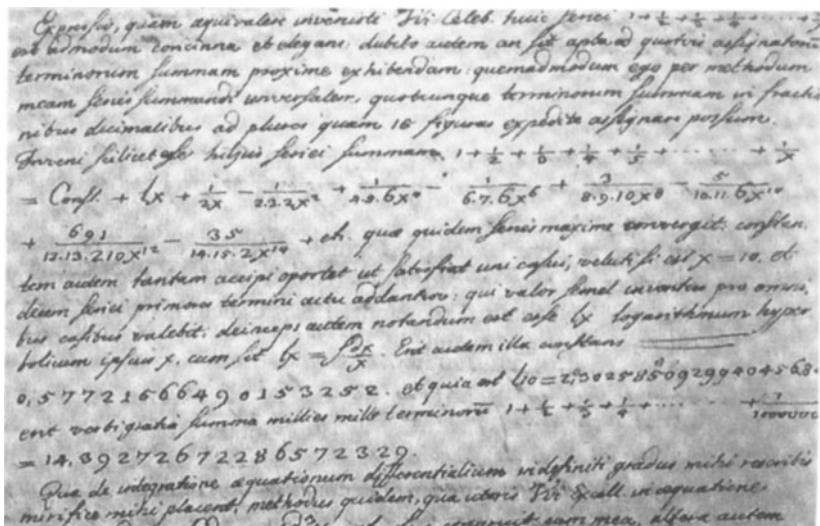 Expressio, quam aequivalere invenisti Vir Celeb. huic seriei 1 + 1/2 + 1/3 + 1/4 ......+
est admodum concinna et elegans: dubito autem an sit apta ad quotvis assignatorum
terminorum summam proxime exhibendam: quemadmodum ego per methodum
meam series summandi universalem, quotcunque terminorum summam in fractio
nibus decimalibus ad plures quam 16 figuras expedite assignare possum.
Inveni scilicet esse hujus seriei summam 1 + 1/2 + 1/3 + 1/4 + 1/5 + ...... + 1/x
= Const. + lx + 1/2x - 1/2.3.2x^2 + 1/4.5.6x^4 - 1/6.7.6x^6 + 3/8.9.10x^8 - 5/10.11.6x^10
+ 691/12.13.210x^12 - 35/14.15.2x^14 + etc. quae quidem series maxime convergit: constan
tem autem tantam accipi oportet ut satisfiat uni casui, veluti si est x = 10, et
decem seriei primores termini actu addantur: qui valor semel inventus pro omni
bus casibus valebit. deinceps autem notandum est esse lx logarithmum hyper
bolicum ipsius x, cum sit lx = ∫dx/x. Erit autem illa constans
0,5772156649015325 2. et quia est l10 = 2,302585092994045 68
erit vestigatia summa millies mille terminorum 1 + 1/2 + 1/3 + 1/4 + ...... + 1/1000000
= 14,392726722865 72329.
Quae de integratione aequationum differentialium indefiniti gradus mihi rescribis
mirifice mihi placent, methodus quidem, qua uteris Vir Excell. in aequatione
convenit cum mea, altera autem